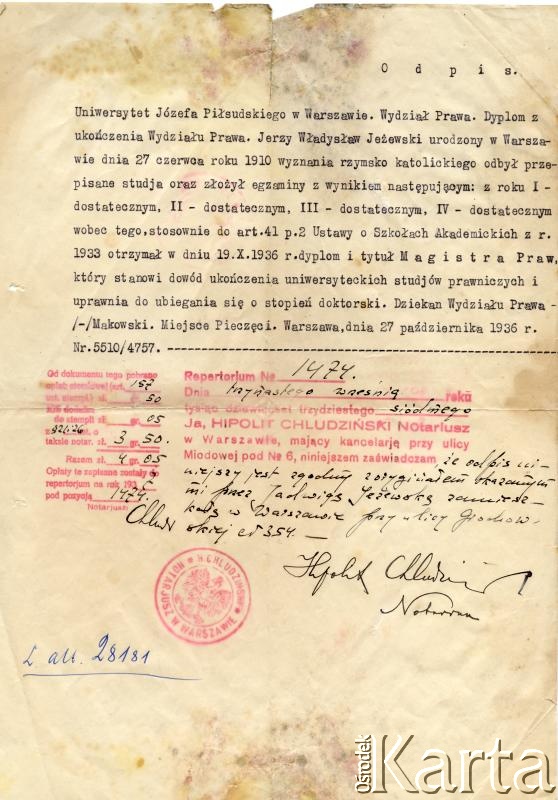 O d p i s.
Uniwersytet Józefa Piłsudskiego w Warszawie. Wydział Prawa. Dyplom z
ukończenia Wydziału Prawa. Jerzy Władysław Jeżewski urodzony w Warsza-
wie dnia 27 czerwca roku 1910 wyznania rzymsko katolickiego odbył prze-
pisane studja oraz złożył egzaminy z wynikiem następującym: z roku I-
dostatecznym, II - dostatecznym, III - dostatecznym, IV - dostatecznym
wobec tego,stosownie do art.41 p.2 Ustawy o Szkołach Akademickich z r.
1933 otrzymał w dniu 19.X.1936 r.dyplom i tytuł M a g i s t r a P r a w,
który stanowi dowód ukończenia uniwersyteckich studjów prawniczych i
uprawnia do ubiegania się o stopień doktorski. Dziekan Wydziału Prawa -
/-/Makowski. Miejsce Pieczęci. Warszawa,dnia 27 października 1936 r.
Nr.5510/4757. ---------------
Od dokumentu tego pobrano
opłat: stemplowej (art. 152
ust. stempl.) zł. gr. 50
do stempli zł. gr. 05
taksie notar. zł. 3 gr. 50.
Razem zł. 4 gr. 05
Opłaty te zapisane zostały do
repertorium na rok 193
pod pozycją 1474.
Notarjusz
Repertorium № 1474.
Dnia trzynastego września roku
tysiąc dziewięćset trzydziestego siódmego
Ja, HIPOLIT CHLUDZIŃSKI Notariusz
w Warszawie, mający kancelarję przy ulicy
Miodowej pod № 6, niniejszem zaświadczam że odpis ni-
niejszy jest zgodny z oryginałem okazanym
mi przez Jadwigę Jeżewską zamiesz-
kałą w Warszawie przy ulicy Grochow-
skiej № 354. -
Hipolit Chludziński
Notariusz
H. CHLUDZIŃSKI
NOTARJUSZ W WARSZAWIE
L. alt. 28181
Ośrodek
Karta